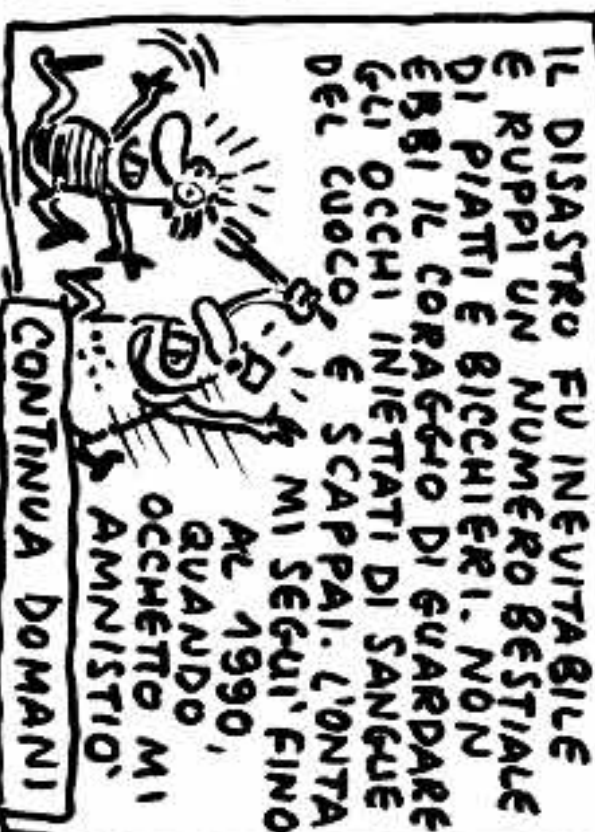 IL DISASTRO FU INEVITABILE
E RUPPI UN NUMERO BESTIALE
DI PIATTI E BICCHIERI. NON
EBBI IL CORAGGIO DI GUARDARE
GLI OCCHI INIETTATI DI SANGUE
DEL CUOCO E SCAPPAI. L'ONTA
MI SEGUI' FINO
AL 1990,
QUANDO
OCCHETTO MI
AMNISTIO'
CONTINUA DOMANI